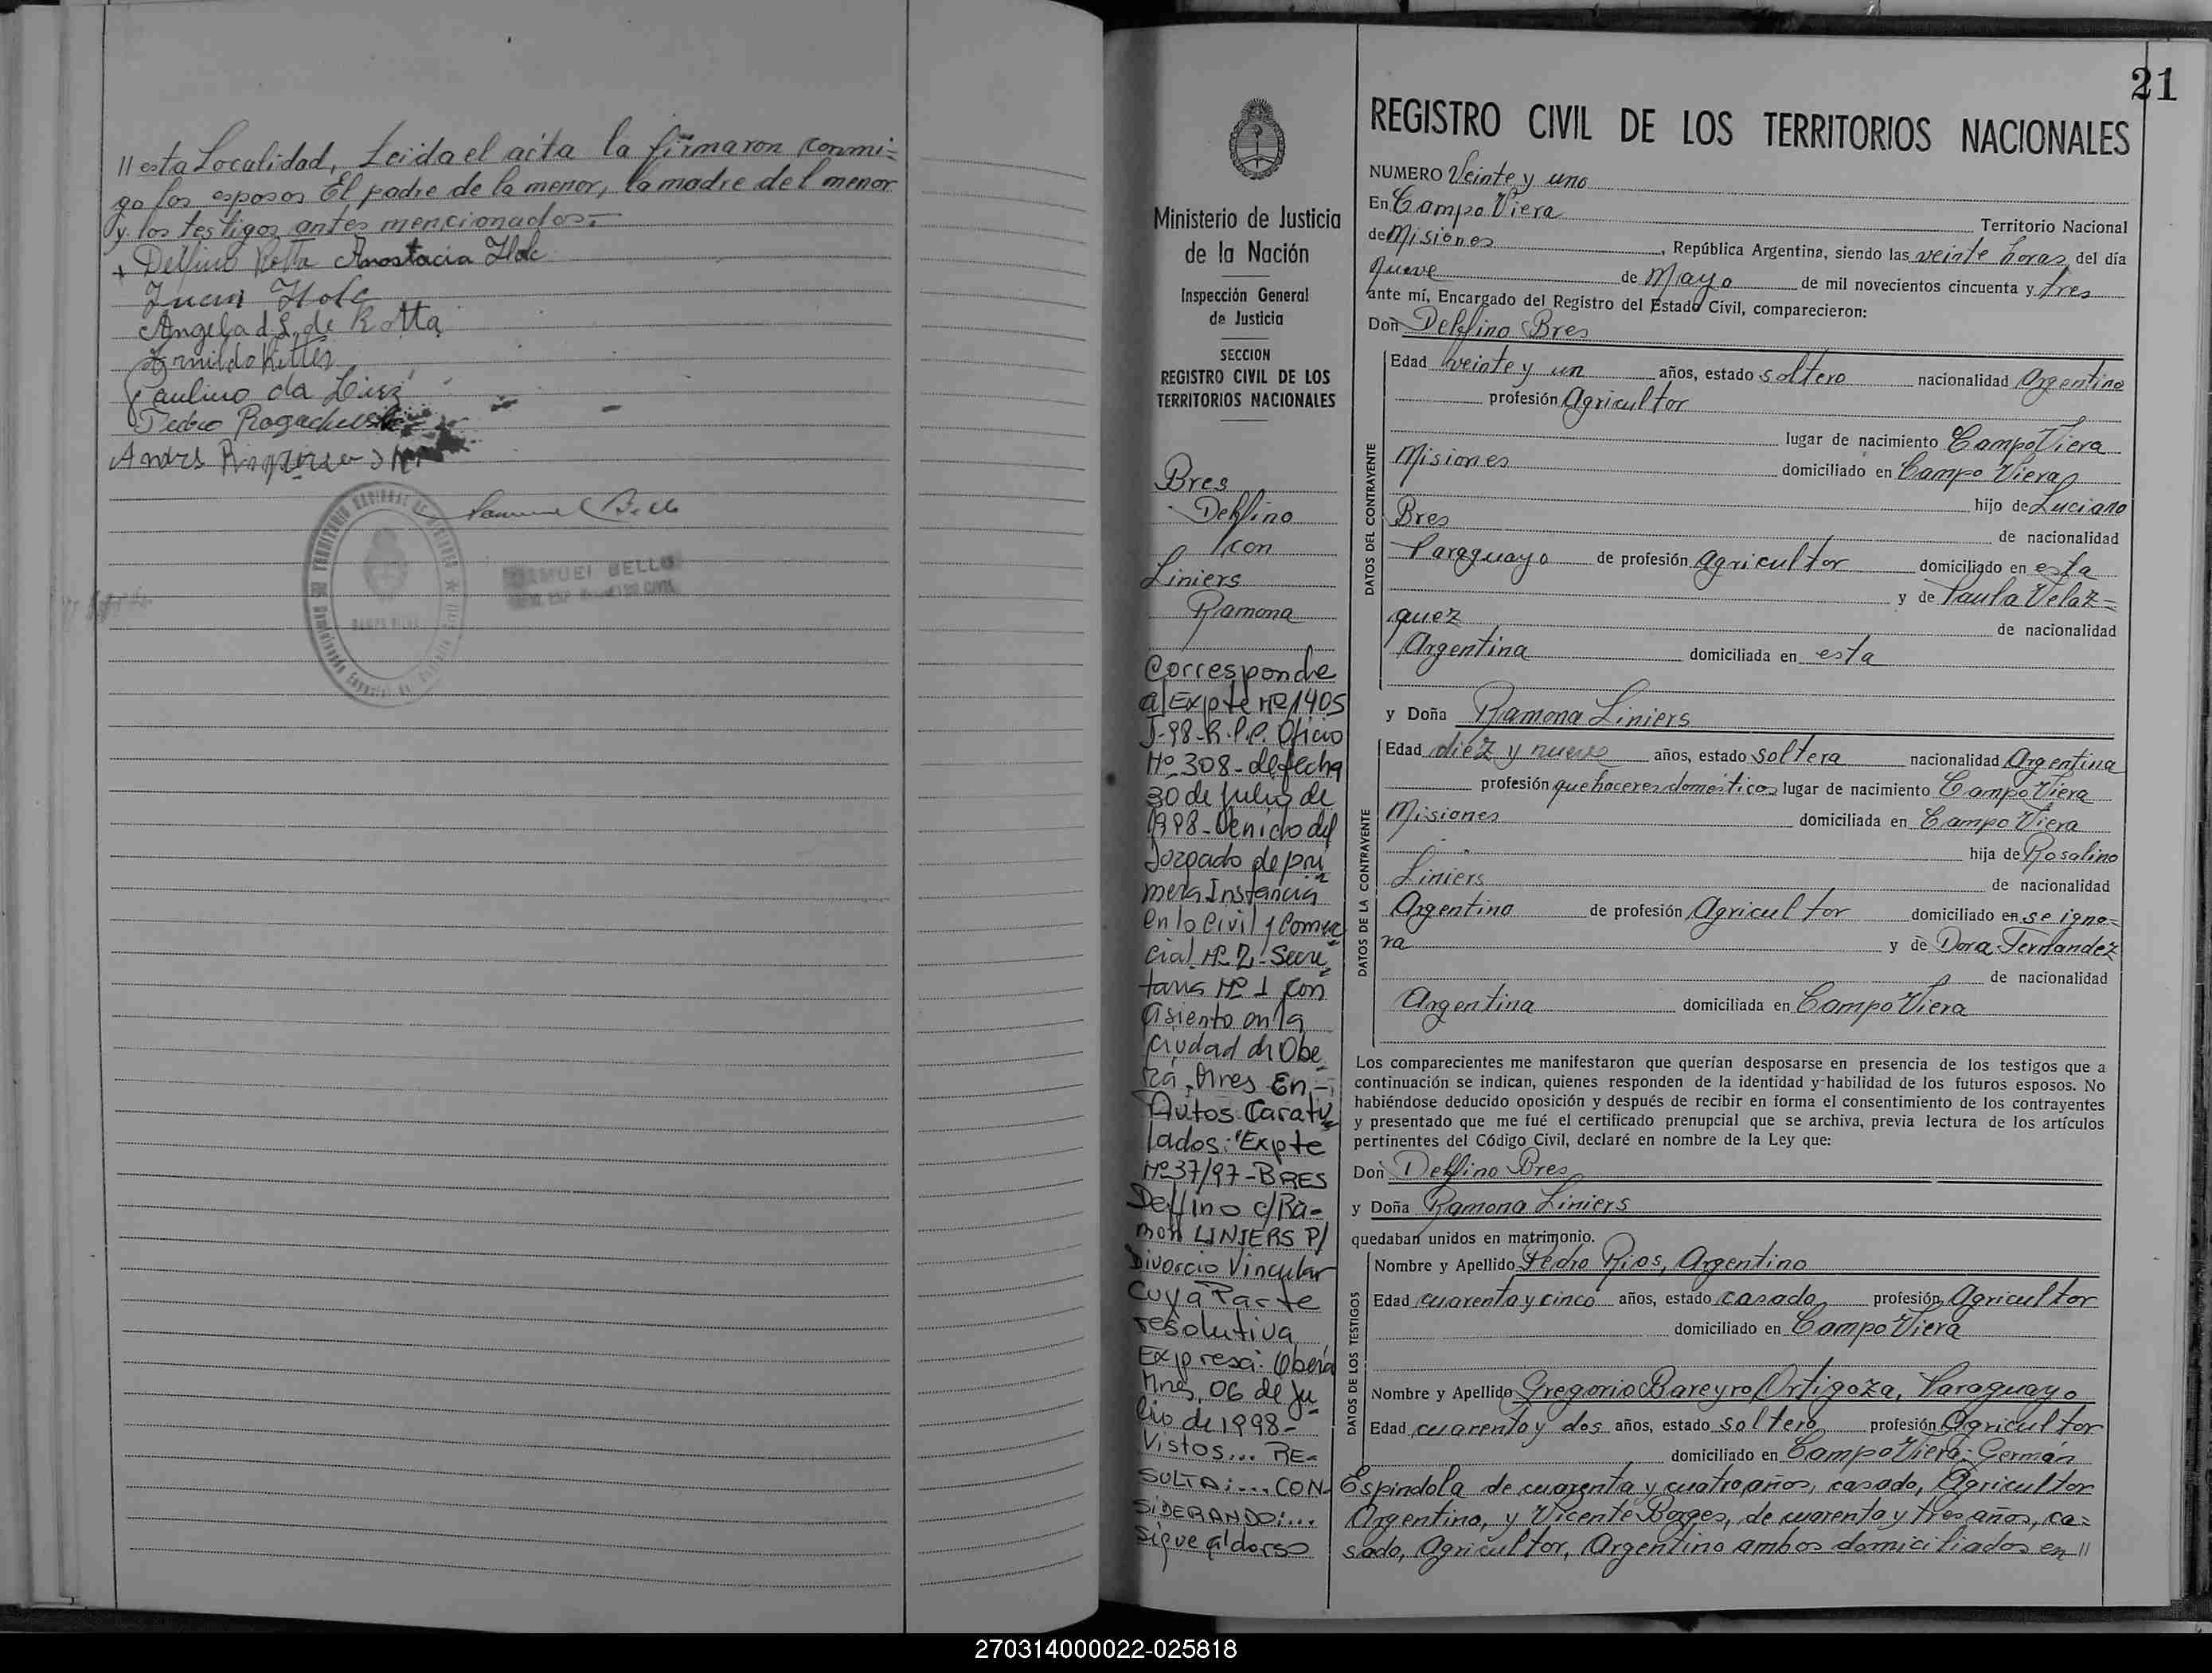 // esta Localidad, Leida el acta la firmaron conmi=
go los esposos El padre de la menor, la madre del menor
y los testigos antes mencionados.-
Delfino Rotta Anastacia
Juan
Angela d S. de Rotta
Paulino da Luz
Pedro
SAMUEL BELLO
21
Ministerio de Justicia
de la Nación
Inspección General
de Justicia
SECCION
REGISTRO CIVIL DE LOS
TERRITORIOS NACIONALES
Bres
Delfino
con
Liniers
Ramona
Corresponde
al Expte Nº 1405
J-98-R.P.P. Oficio
Nº 308- de fecha
30 de Julio de
1998- Venido del
Juzgado de pri
mera Instancia
en lo Civil y Comer
cial Nº 2- Secre
taria Nº 1 con
asiento en la
ciudad de Obe
rá. Mnes En-
Autos Caratu
lados: "Expte
Nº 37/97-BRES
Delfino c/Ra-
mon LINIERS P/
Divorcio Vincular
Cuya Parte
resolutiva
Expresa: Oberá
Mnes, 06 de Ju
lio de 1998-
Vistos... RE-
SULTA:... CON-
SIDERANDO:...
Sigue al dorso
REGISTRO CIVIL DE LOS TERRITORIOS NACIONALES
NUMERO Veinte y uno
En Campo Viera Territorio Nacional
de Misiones, República Argentina, siendo las veinte horas del día
nueve de Mayo de mil novecientos cincuenta y tres
ante mí, Encargado del Registro del Estado Civil, comparecieron:
Don Delfino Bres
DATOS DEL CONTRAYENTE
Edad veinte y un años, estado soltero nacionalidad Argentina
profesión Agricultor
lugar de nacimiento Campo Viera
Misiones domiciliado en Campo Viera
hijo de Luciano
Bres de nacionalidad
Paraguayo de profesión Agricultor domiciliado en esta
y de Paula Velaz=
quez de nacionalidad
Argentina domiciliada en esta
y Doña Ramona Liniers
DATOS DE LA CONTRAYENTE
Edad diez y nueve años, estado soltera nacionalidad Argentina
profesión quehaceres domésticos lugar de nacimiento Campo Viera
Misiones domiciliada en Campo Viera
hija de Rosalino
Liniers de nacionalidad
Argentino de profesión Agricultor domiciliado en se igno=
ra y de Dora Fernandez
de nacionalidad
Argentina domiciliada en Campo Viera
Los comparecientes me manifestaron que querían desposarse en presencia de los testigos que a
continuación se indican, quienes responden de la identidad y habilidad de los futuros esposos. No
habiéndose deducido oposición y después de recibir en forma el consentimiento de los contrayentes
y presentado que me fué el certificado prenupcial que se archiva, previa lectura de los artículos
pertinentes del Código Civil, declaré en nombre de la Ley que:
Don Delfino Bres
y Doña Ramona Liniers
quedaban unidos en matrimonio.
DATOS DE LOS TESTIGOS
Nombre y Apellido Pedro Rios, Argentino
Edad cuarenta y cinco años, estado casado profesión Agricultor
domiciliado en Campo Viera
Nombre y Apellido Gregorio Bareyro Ortigoza, Paraguayo
Edad cuarenta y dos años, estado soltero profesión Agricultor
domiciliado en Campo Viera; Germán
Espindola de cuarenta y cuatro años, casado, Agricultor
Argentino, y Vicente Borges, de cuarenta y tres años, ca=
sado, Agricultor, Argentino ambos domiciliados en //
270314000022-025818